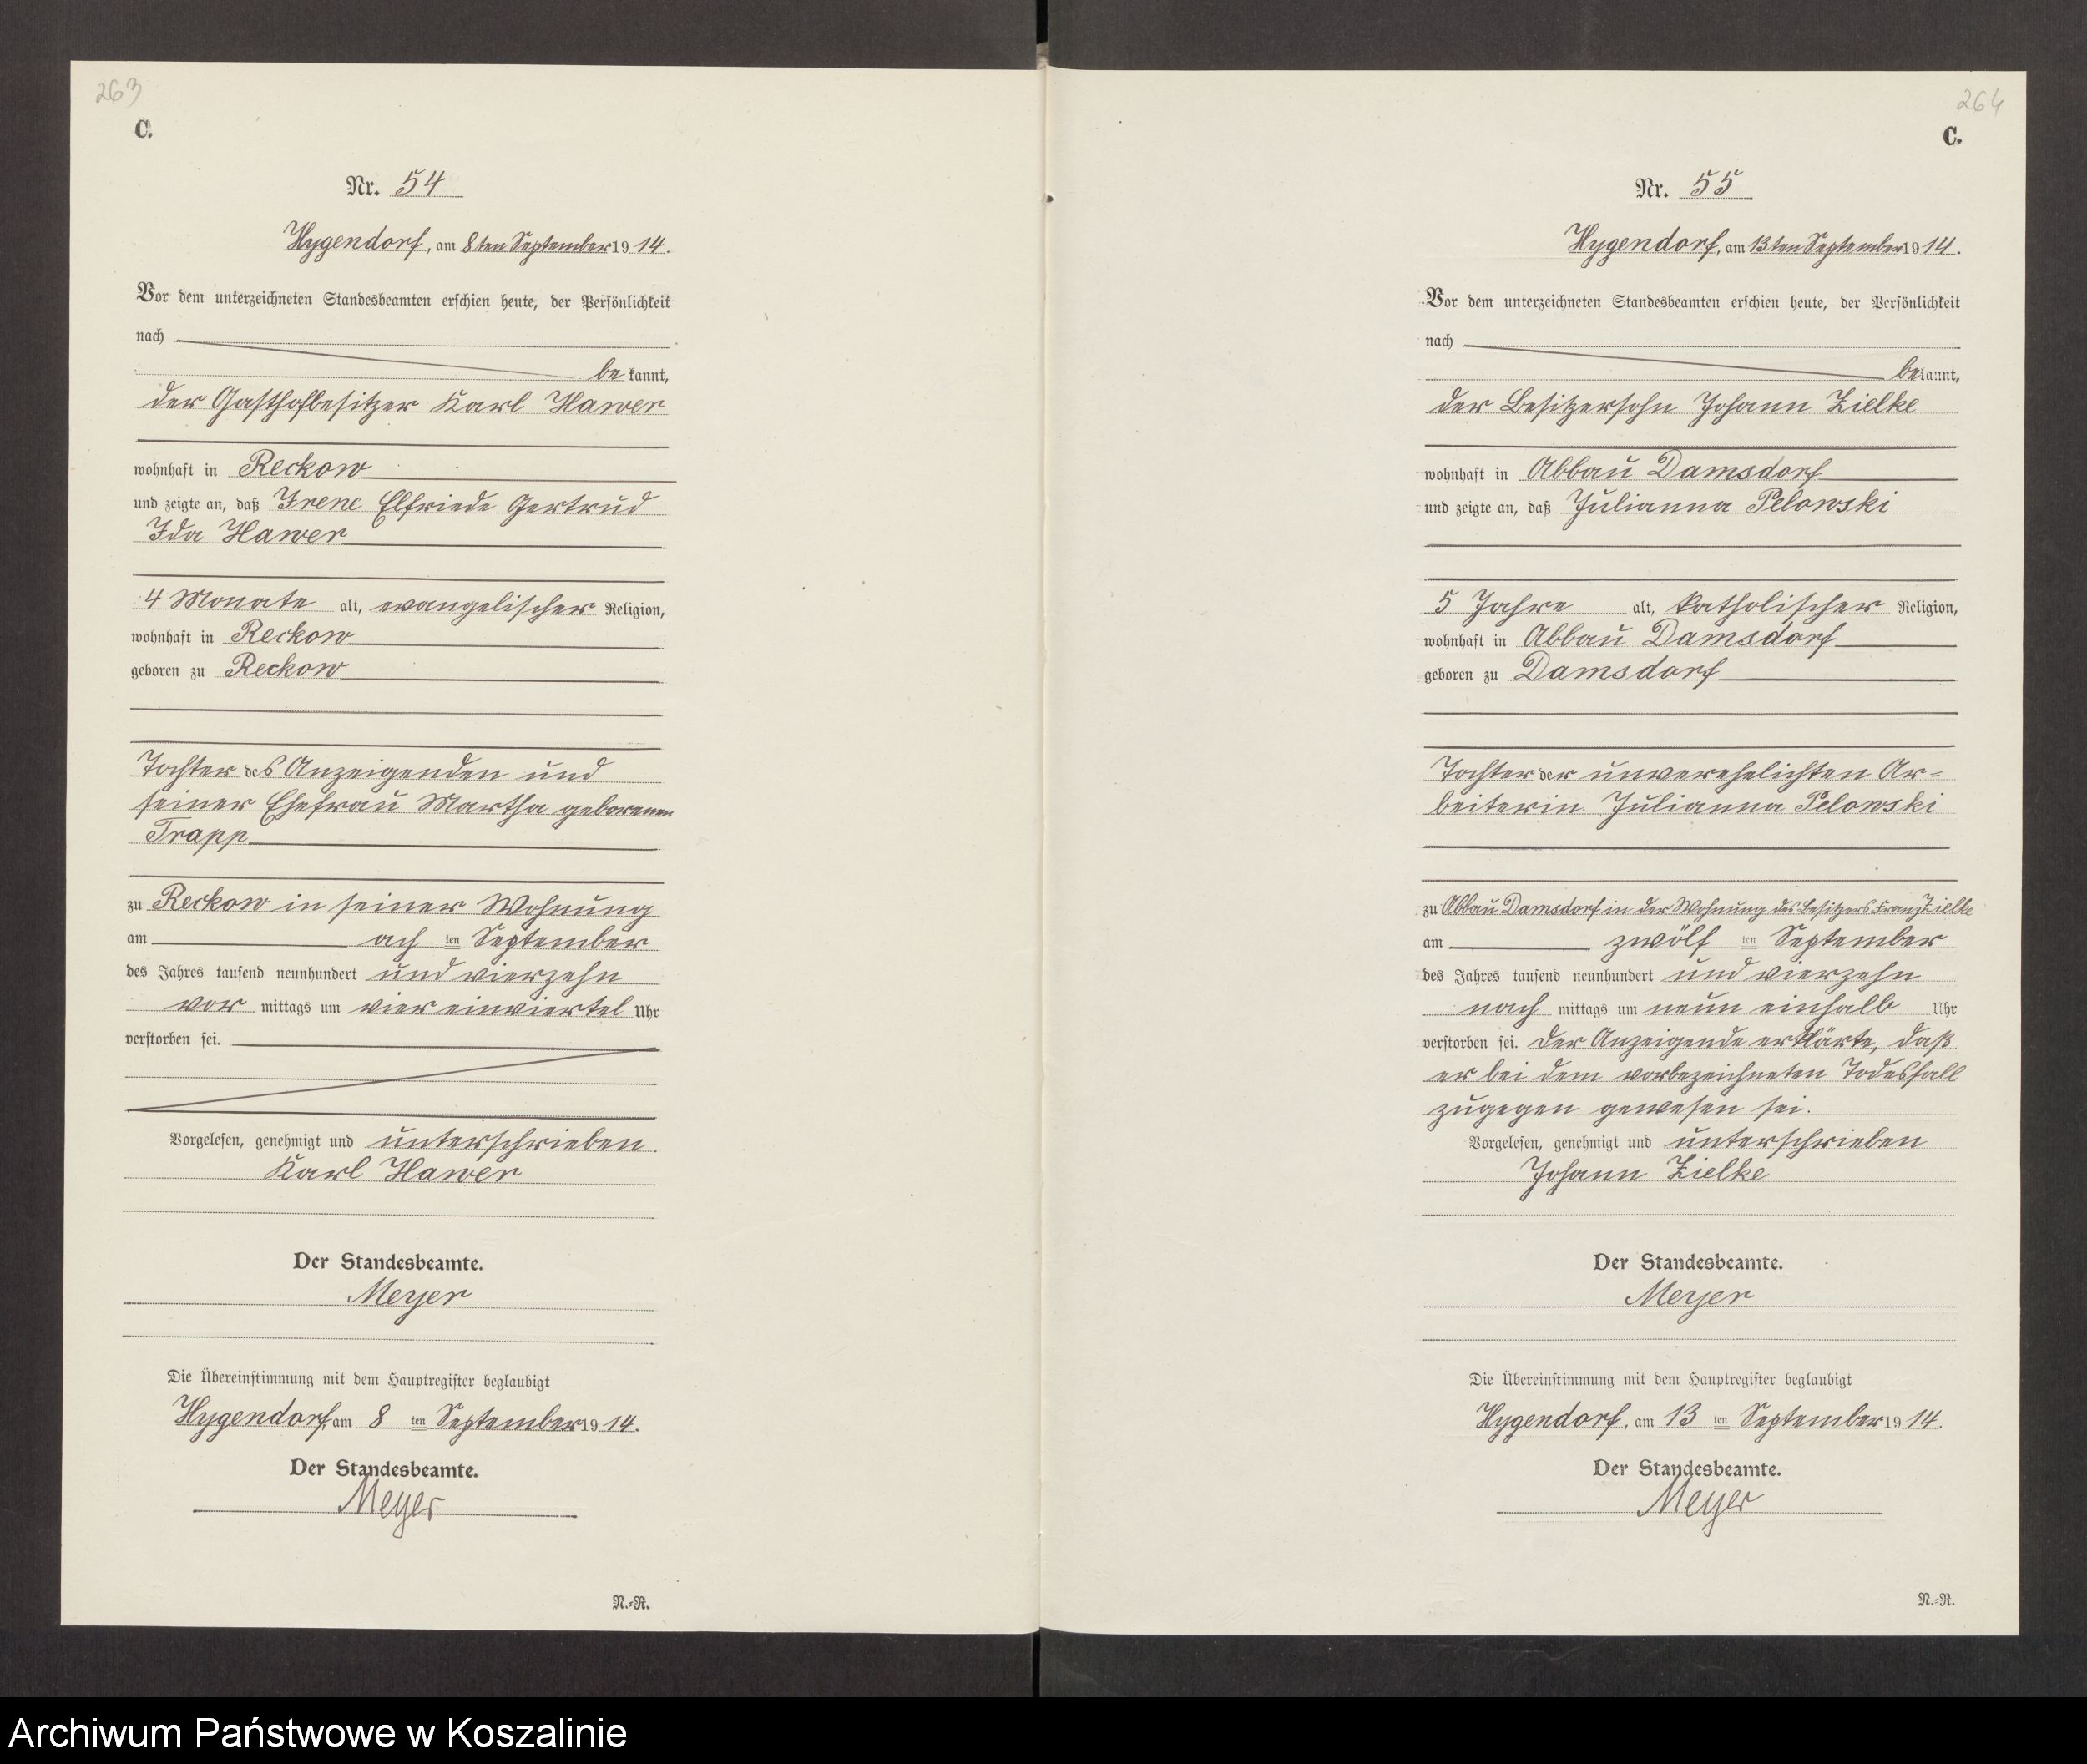 263
C.
Nr. 54
Hygendorf, am 8ten September 1914.
Vor dem unterzeichneten Standesbeamten erschien heute, der Persönlichkeit
nach
be kannt,
der Gasthofbesitzer Karl Hawer
wohnhaft in Reckow
und zeigte an, daß Irene Elfriede Gertrud
Ida Hawer
4 Monate alt, evangelischer Religion,
wohnhaft in Reckow
geboren zu Reckow
Tochter des Anzeigenden und
seiner Ehefrau Martha geborenen
Trapp
zu Reckow in seiner Wohnung
am ach ten September
des Jahres tausend neunhundert und vierzehn
vor mittags um vier einviertel Uhr
verstorben sei.
Vorgelesen, genehmigt und unterschrieben.
Karl Hawer
Der Standesbeamte.
Meyer
Die Übereinstimmung mit dem Hauptregister beglaubigt
Hygendorf, am 8 ten September 1914.
Der Standesbeamte.
Meyer
N.-R.
264
C.
Nr. 55
Hygendorf, am 13ten September 1914.
Vor dem unterzeichneten Standesbeamten erschien heute, der Persönlichkeit
nach
bekannt,
der Besitzersohn Johann Zielke
wohnhaft in Abbau Damsdorf
und zeigte an, daß Julianna Pelowski
5 Jahre alt, katholischer Religion,
wohnhaft in Abbau Damsdorf
geboren zu Damsdorf
Tochter der unverehelichten Ar-
beiterin Julianna Pelowski
zu Abbau Damsdorf in der Wohnung des Besitzers Franz Zielke
am zwölf ten September
des Jahres tausend neunhundert und vierzehn
nach mittags um neun einhalb Uhr
verstorben sei. Der Anzeigende erklärte, daß
er bei dem vorbezeichneten Todesfall
zugegen gewesen sei.
Vorgelesen, genehmigt und unterschrieben
Johann Zielke
Der Standesbeamte.
Meyer
Die Übereinstimmung mit dem Hauptregister beglaubigt
Hygendorf, am 13 ten September 1914.
Der Standesbeamte.
Meyer
N.-R.
Archiwum Państwowe w Koszalinie